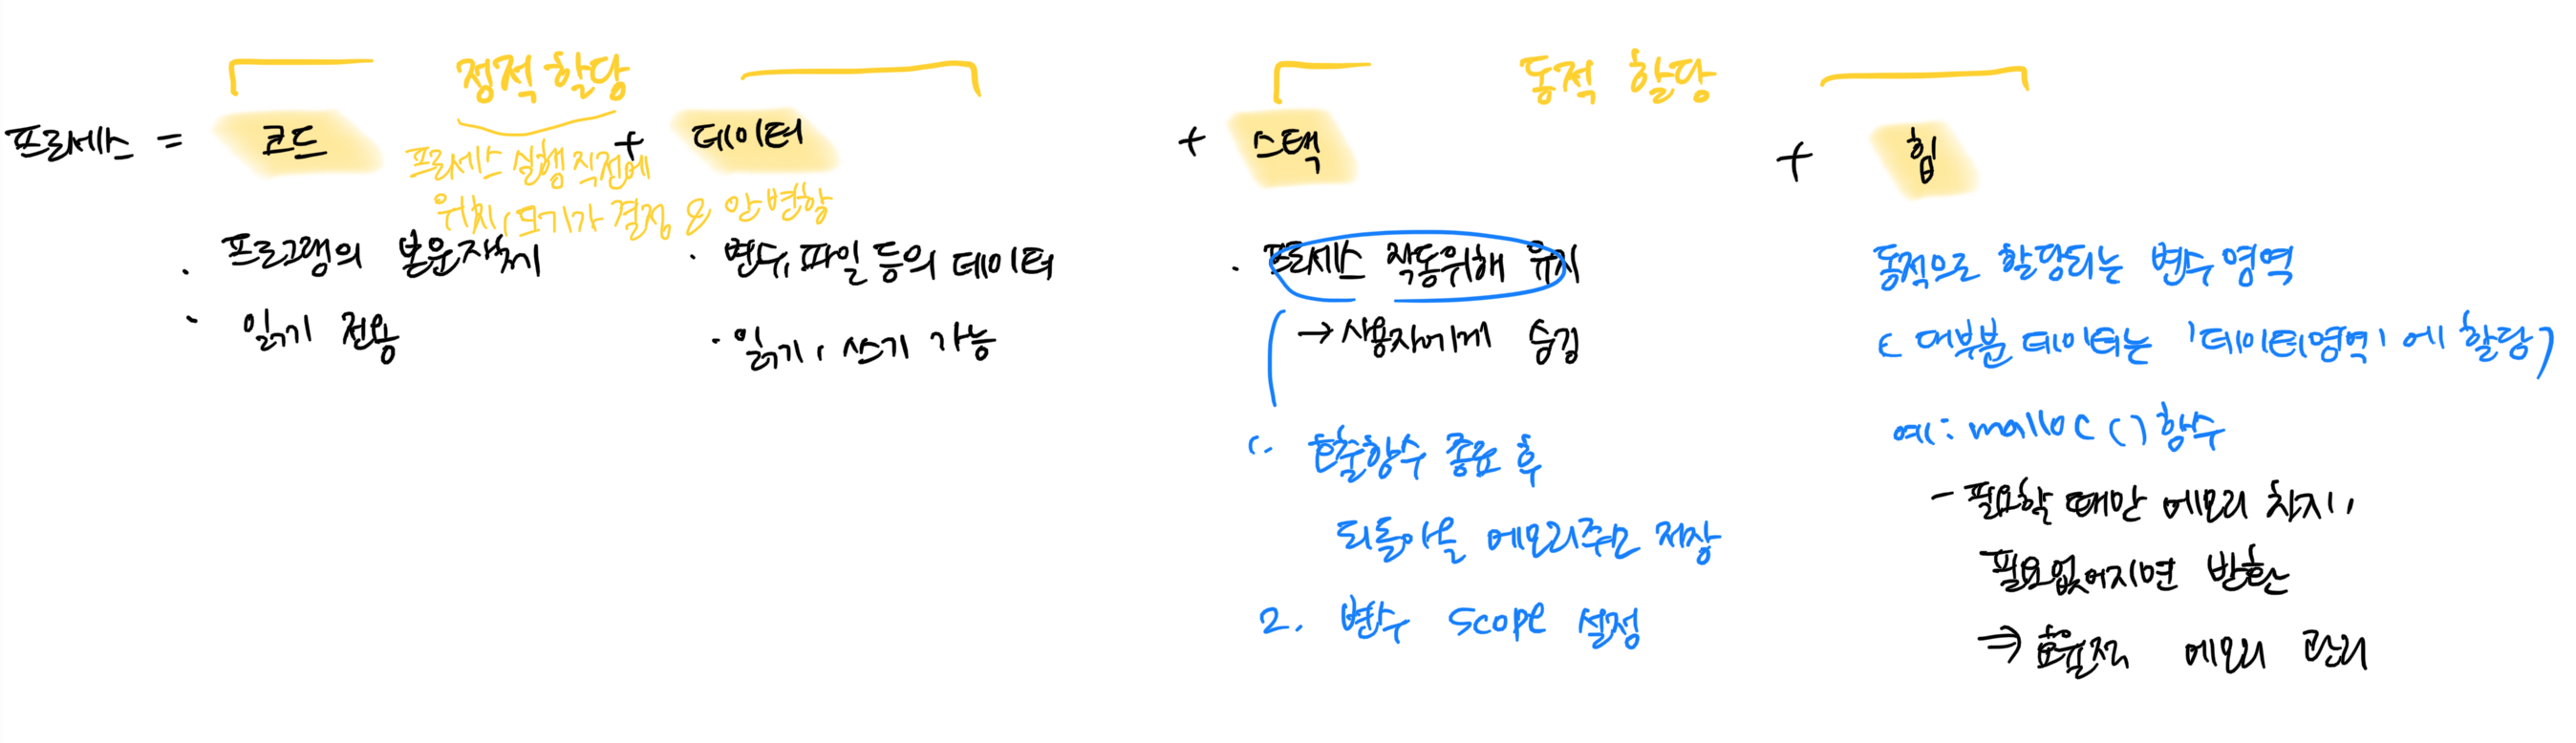 정적 할당
동적 할당
프로세스 = 코드 + 데이터 + 스택 + 힙
프로세스 실행 직전에
위치, 크기가 결정 & 안변함
· 프로그램의 본문자체
· 읽기 전용
· 변수, 파일 등의 데이터
· 읽기, 쓰기 가능
· 프로세스 작동위해 유지
→ 사용자에게 숨김
1. 호출함수 종료 후
되돌아올 메모리주소 저장
2. 변수 scope 설정
동적으로 할당되는 변수영역
( 대부분 데이터는 '데이터영역'에 할당)
예: malloc () 함수
- 필요할 때만 메모리 차지,
필요없어지면 반환
⇒ 효율적 메모리 관리